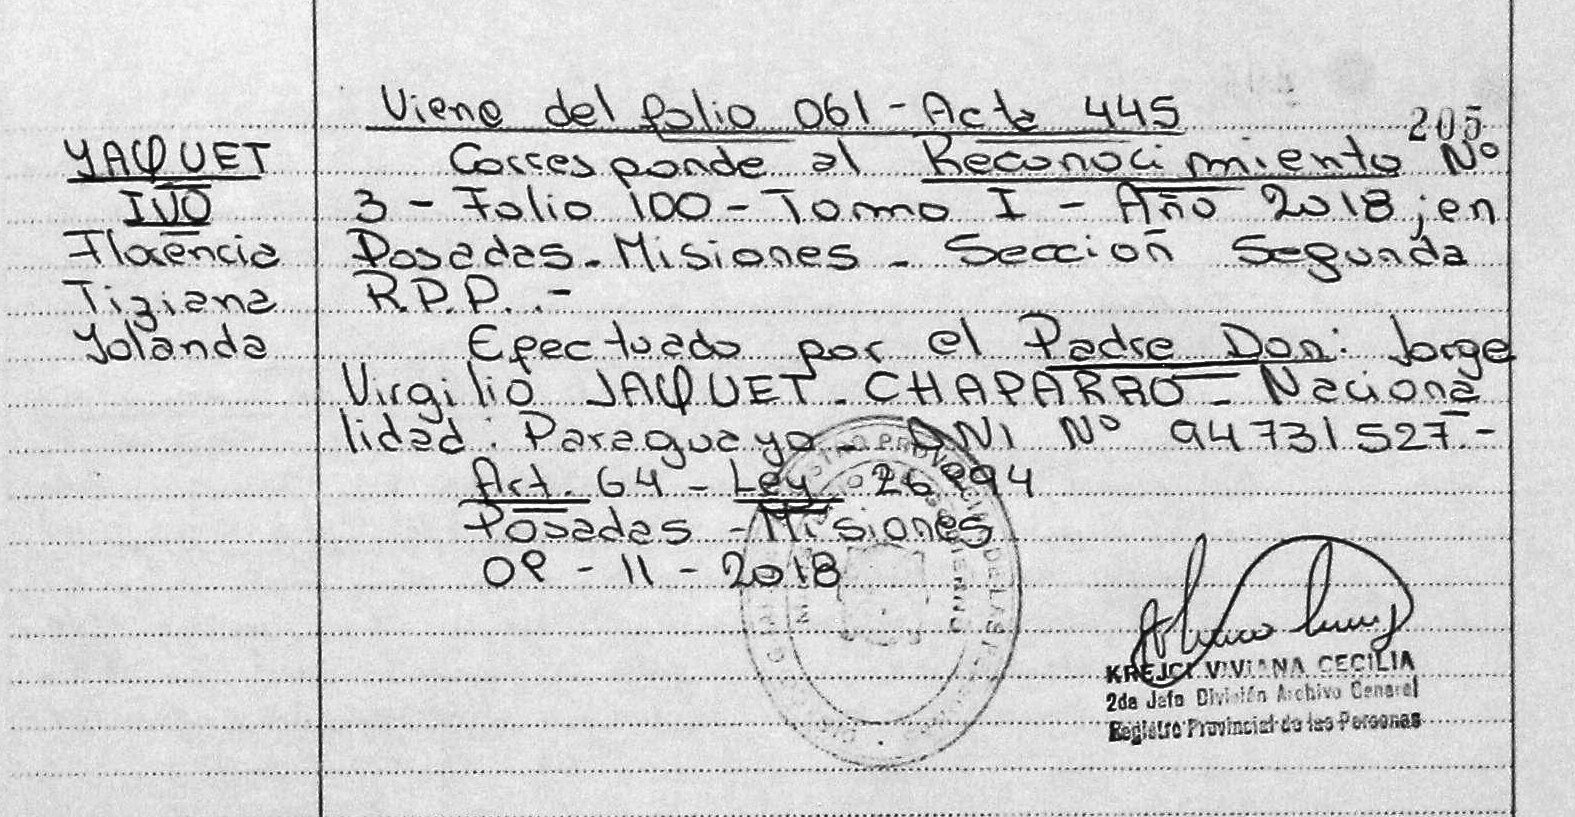 Viene del folio 061 - Acta 445
205
YAQUET
IVO
Florencia
Tiziana
Yolanda
Corresponde al Reconocimiento Nº
3 - Folio 100 - Tomo I - Año 2018; en
Posadas - Misiones - Sección Segunda
R.P.P. -
Efectuado por el Padre Don: Jorge
Virgilio JAQUET - CHAPARRO - Naciona
lidad: Paraguayo - DNI Nº 94731527 -
Art. 64 - Ley 26994
Posadas - Misiones
09 - 11 - 2018
KREJCI VIVIANA CECILIA
2da Jefa División Archivo General
Registro Provincial de las Personas